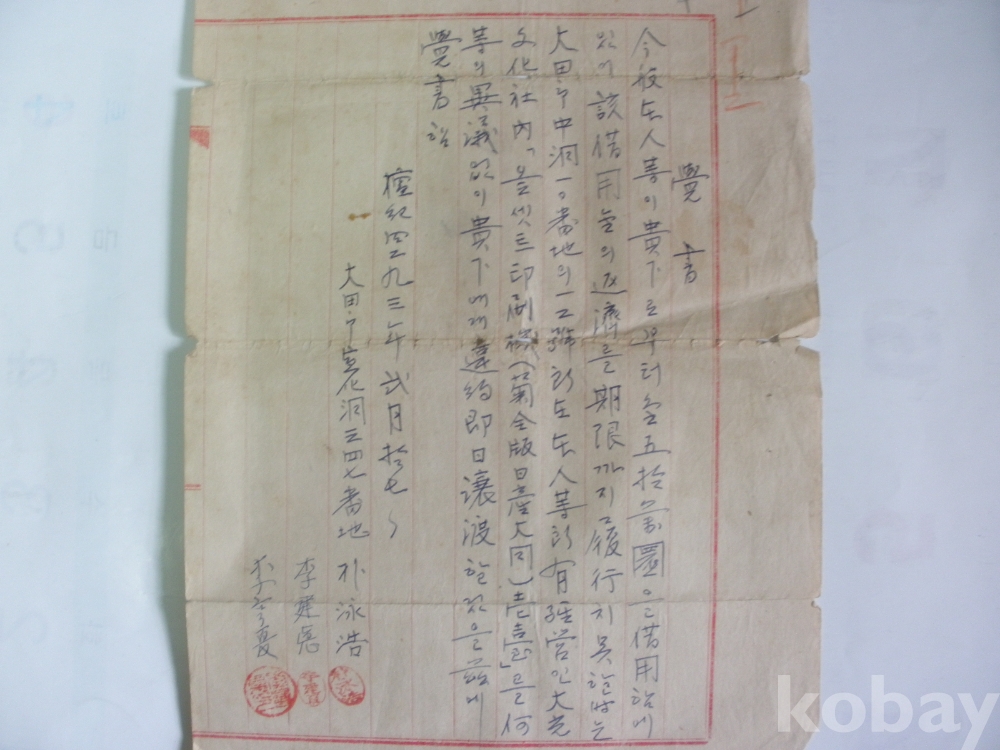 覺書
今般本人等이 貴下로부터 金五拾萬圜을 借用함에
있어 該借用金의 返濟를 期限까지 履行치 못할 때는
大田市中洞一〇番地의 一二號所在 本人等 所有 經營인 大光
文化社內「옵셋트印刷機(菊全版日產大同)壱臺」를 何
等의 異議없이 貴下에게 違約卽日讓渡할 것을 玆에
覺書함
檀紀四二九三年 弐月拾七日
大田市宣化洞三四七番地 朴泳浩
李
kobay